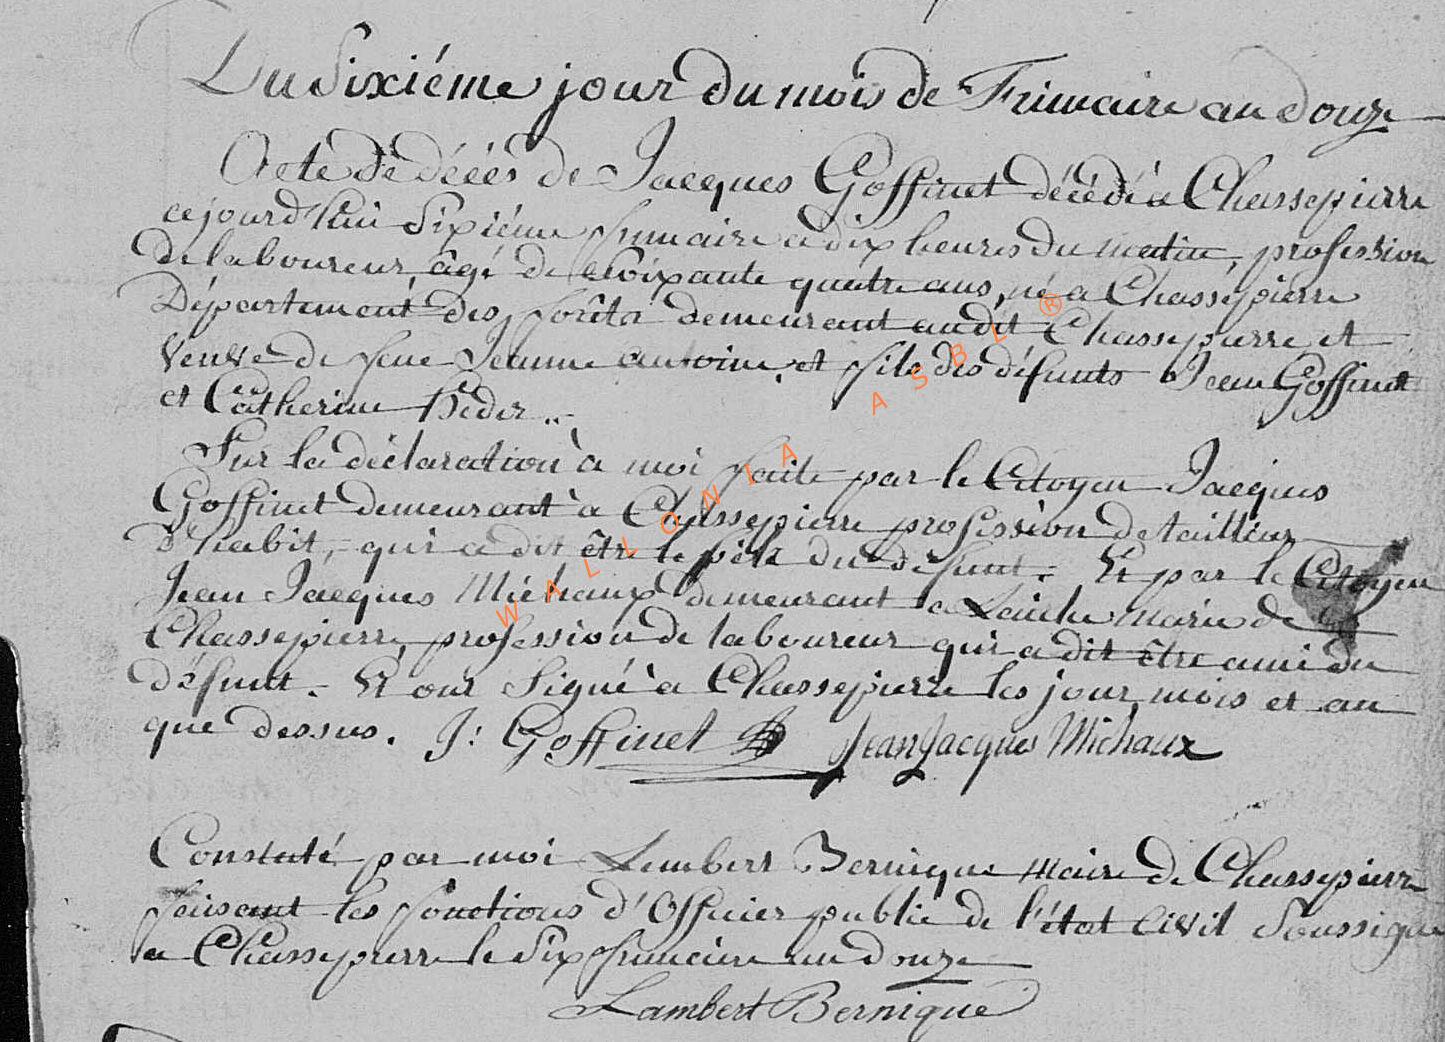 Du Sixiéme jour du mois de Frimaire an douze
Acte de décès de Jacques Goffinet décédé a Chassepierre
cejourd'hui Sixiéme frimaire a dix heures du matin, profession
de laboureur, âgé de soixante quatre ans, né a Chassepierre
Département des forêts demeurant audit Chassepierre et
veuve de feue Jeanne antoine, et fils des défunts Jean Goffinet
et Catherine
Sur la déclaration à moi faite par le Citoyen Jacques
Goffinet demeurant à Chassepierre profession de tailleur
d'habit, qui a dit être le fils du défunt. Et par le Citoyen
Jean Jacques Michaux demeurant a Laiche mairie de
Chassepierre, profession de laboureur qui a dit être ami du
défunt. Et ont Signé à Chassepierre les jour mois et an
que dessus. J: Goffinet Jean Jacques Michaux
Constaté par moi Lambert Bernique maire de Chassepierre
faisant les fonctions d'Officier public de l'état civil Soussigné
a Chassepierre le Six frimaire an douze
Lambert Bernique
WALLONIA ASBL ®